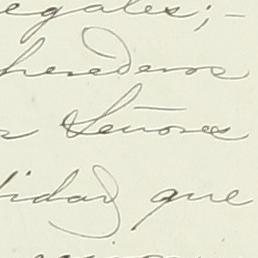 egales;—
herederos
Señores
tidad que